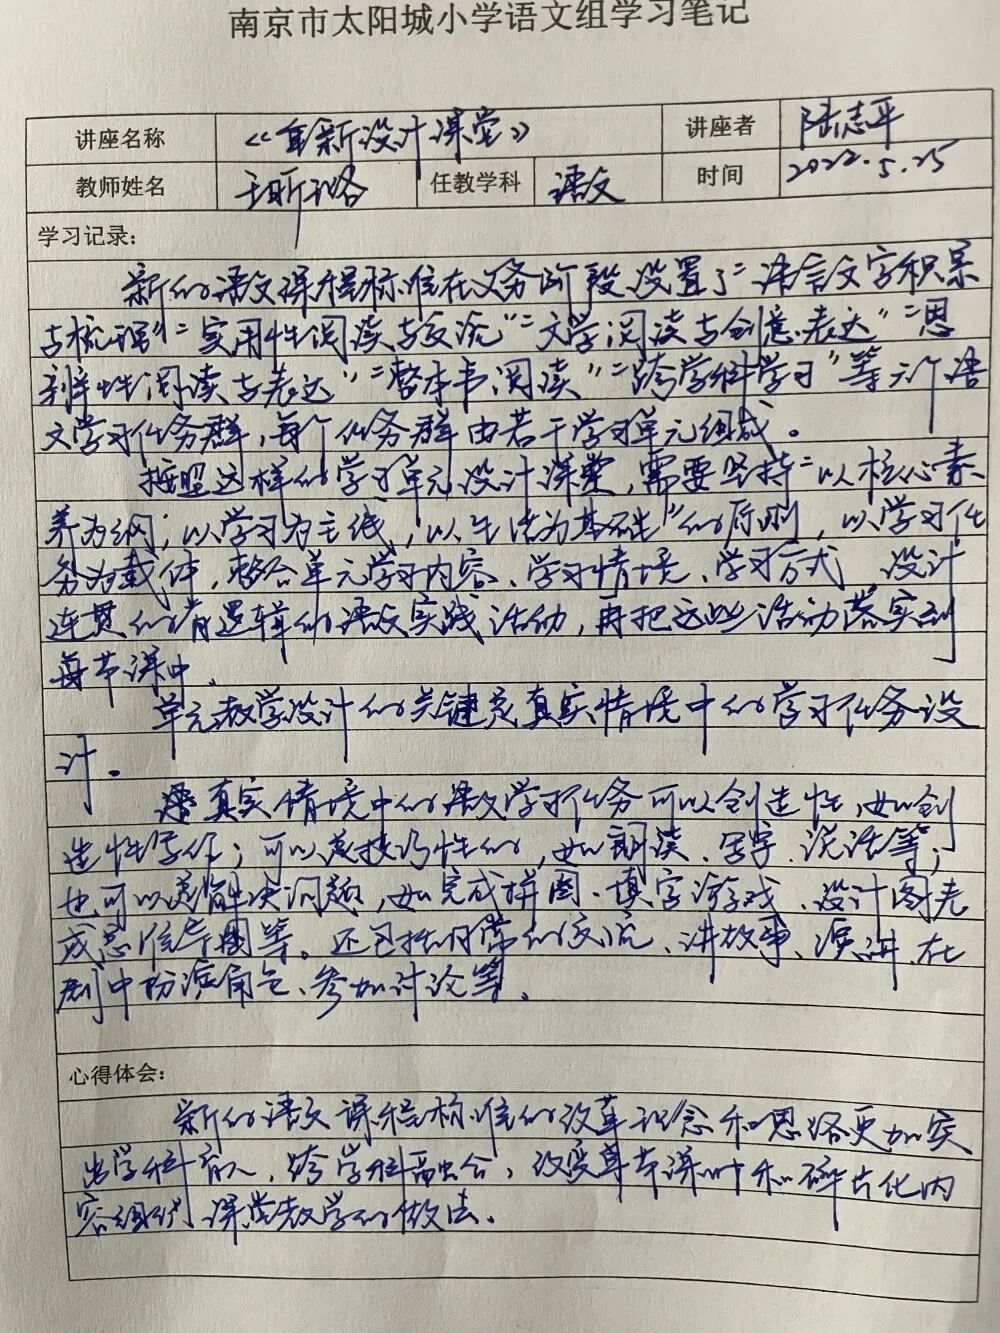 南京市太阳城小学语文组学习笔记
讲座名称 《重新设计课堂》 讲座者 陆志平
教师姓名 任教学科 语文 时间 2022.5.25
学习记录：
新的语文课程标准在义务阶段设置了“语言文字积累
与梳理”“实用性阅读与交流”“文学阅读与创意表达”“思
辨性阅读与表达”“整本书阅读”“跨学科学习”等六个语
文学习任务群，每个任务群由若干学习单元组成。
按照这样的学习单元设计课堂，需要坚持“以核心素
养为纲；以学习为主线；以生活为基础”的原则，以学习任
务为载体，整合单元学习内容、学习情境、学习方式，设计
连贯的有逻辑的语文实践活动，再把这些活动落实到
每节课中。
单元教学设计的关键是真实情境中的学习任务设
计。
真实情境中的语文学习任务可以创造性，如创
造性写作；可以是技巧性的，如朗读、写字、说话等；
也可以是解决问题，如完成拼图、填字游戏、设计图表
或思维导图等。还包括日常的交流、讲故事、演讲、在
剧中扮演角色、参加讨论等。
心得体会：
新的语文课程标准的改革理念和思路更加突
出学科育人，跨学科融合，改变单节课时和碎片化内
容组织课堂教学的做法。